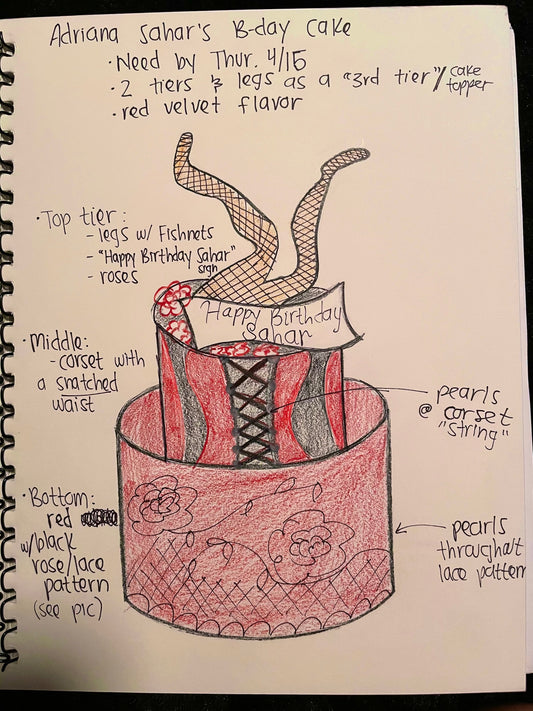 Adriana Sahar's B-day Cake
• Need by Thur. 4/15
• 2 tiers & legs as a "3rd tier"/cake topper
• red velvet flavor
• Top tier:
- legs w/ Fishnets
- "Happy Birthday Sahar" sign
- roses
Happy Birthday
Sahar
• Middle:
- corset with
a snatched
waist
pearls
@ corset
"string"
• Bottom:
red
w/black
rose/lace
pattern
(see pic)
pearls
throughout
lace pattern